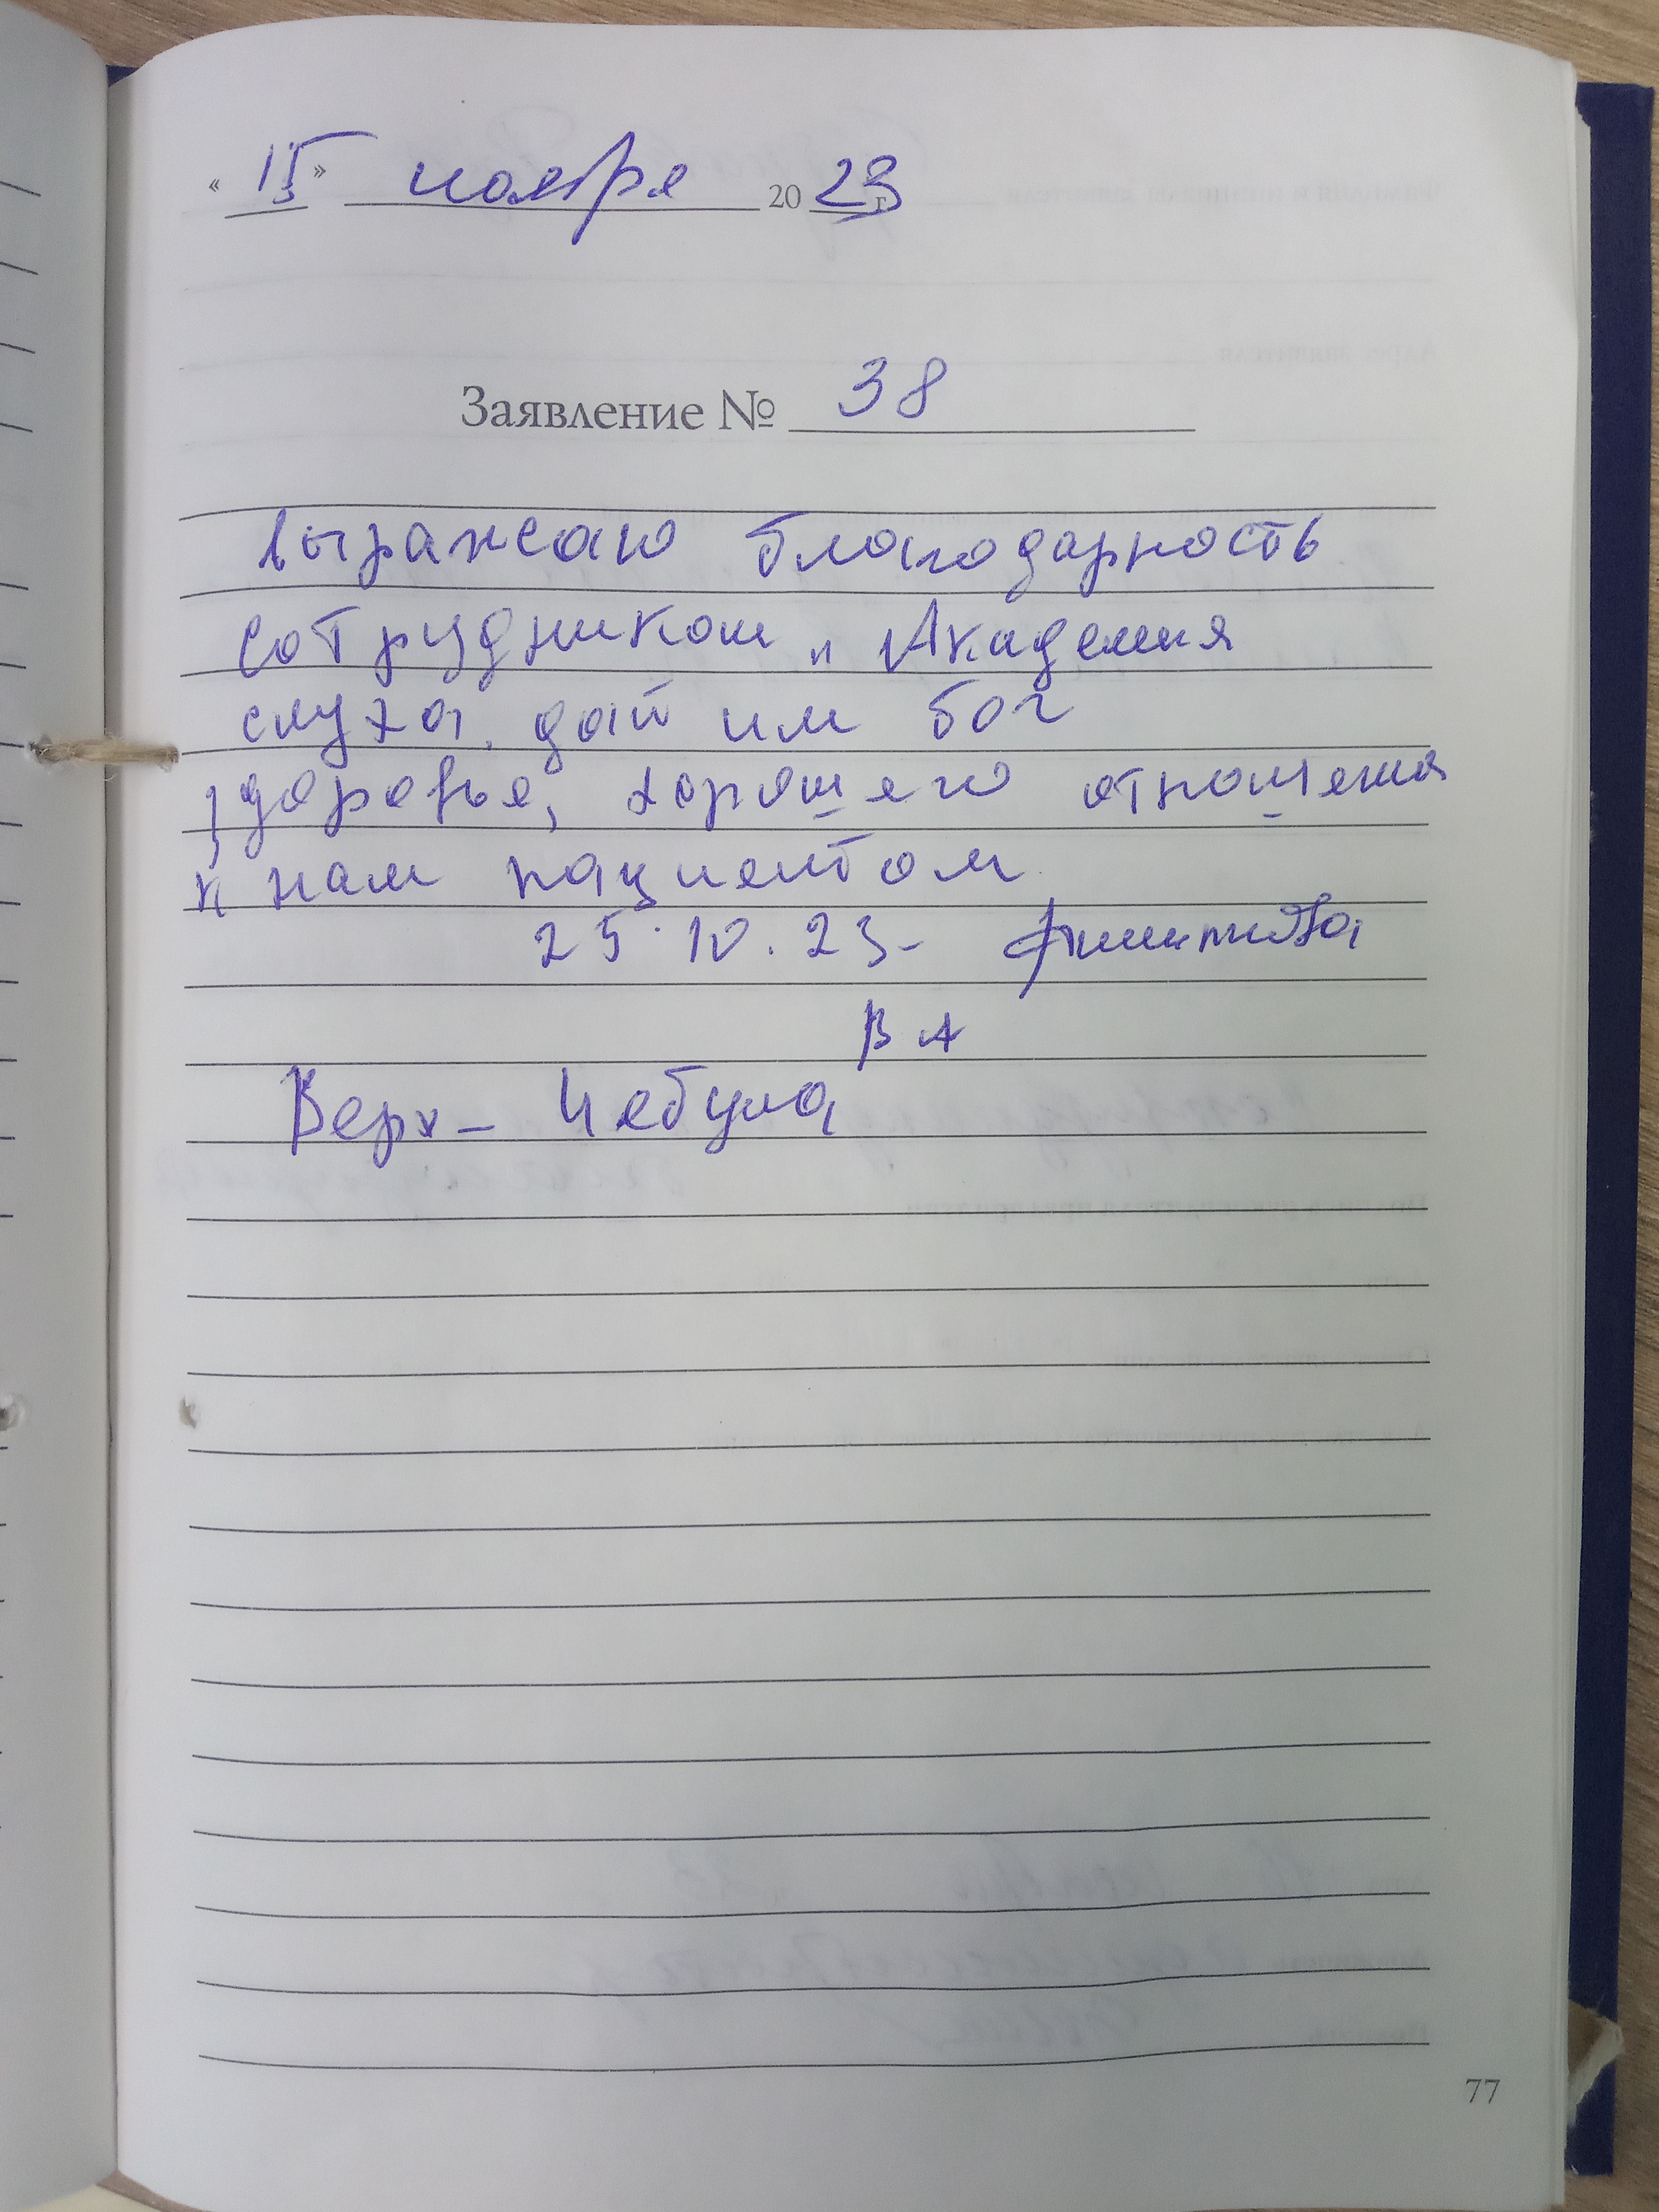 « 15 » ноября 20 23 г.
Заявление № 38
выражаю благодарность
сотрудникам „ Академия
слуха. дай им бог
здоровье, хорошего отношения
к нам пациентом
25.10.23-
В А
Верх - Чебула
77